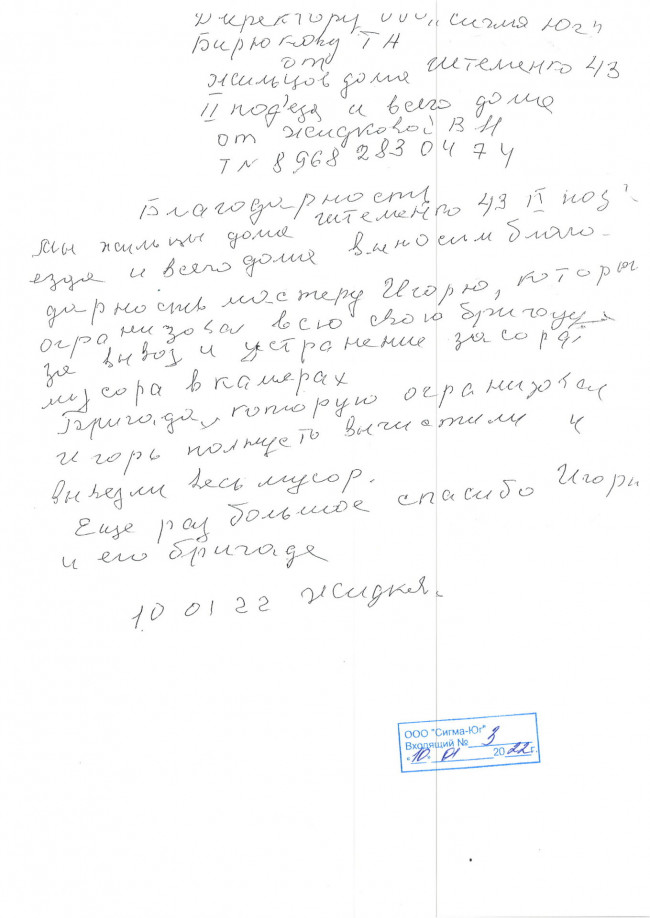 Директору ООО "Сигма Юг"
Бирюкову Т А
от
жильцов дома Штеменко 43
II под'езда и всего дома
от Жидковой В Н
ТЛ 8 968 283 04 74
Благодарность
Мы жильцы дома Штеменко 43 II под'
езда и всего дома выносим благо-
дарность мастеру Игорю, которы
огранизовал всю свою бригоду
за вывоз и устранение засора
мусора в камерах
Бригада, которую огранизовал
Игорь полнустю вычистили и
вывезли весь мусор.
Еще раз большое спасибо Игорю
и его бригаде
10 01 22 Жидкая.
ООО "Сигма-Юг"
Входящий № 3
"10" 01 2022г.